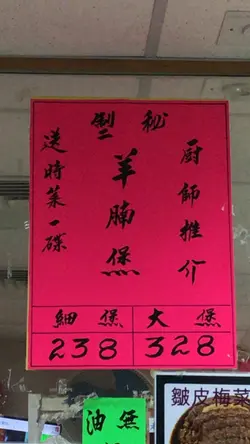 秘製
廚師推介
羊腩煲
送時菜一碟
大煲 細煲
328 238
皺皮梅菜
無
油